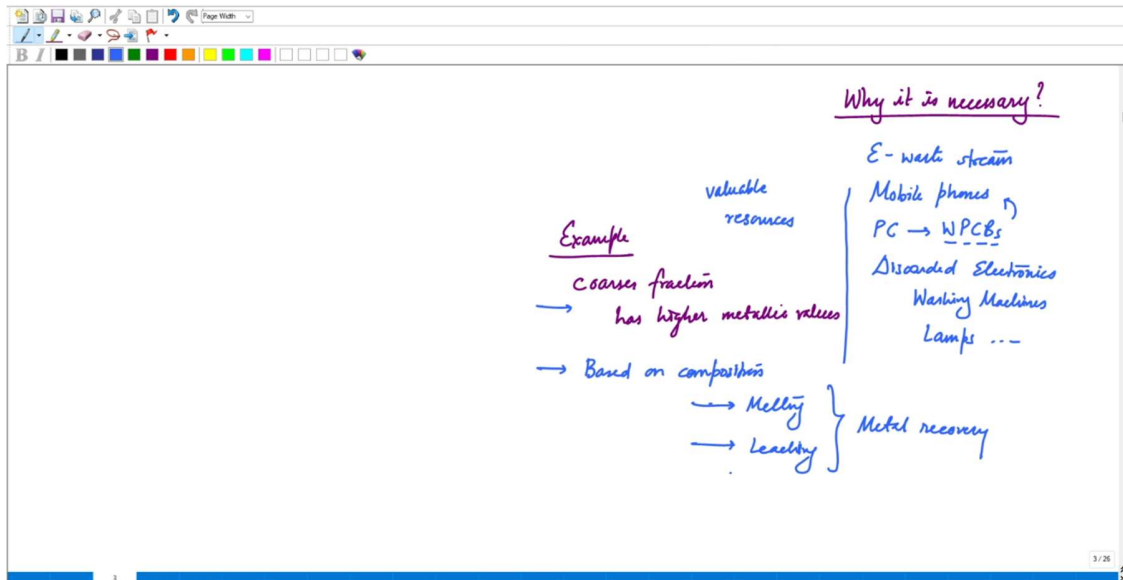 Page Width
B I
Why it is necessary?
E-waste stream
Mobile phones
PC → WPCBs
Discarded Electronics
Washing Machines
Lamps ...
valuable
resources
Example
coarser fraction
→ has higher metallic values
→ Based on composition
→ Melting
→ Leaching
Metal recovery
3 / 26
3